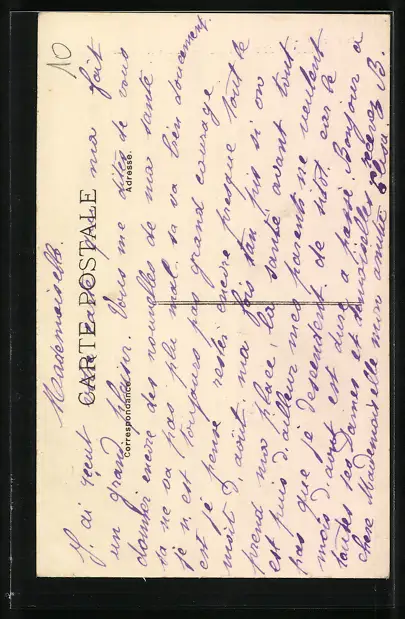 10
CARTE POSTALE
Correspondance.
Adresse.
Mademoiselle.
J'ai reçut carte qui ma fait
un grand plaisir. Vous me dites de vous
donner encore des nouvelles de ma santé
sa ne va pas plu mal sa va bien doucement.
je n'est toujours pas grand courage
est je pense rester encore presque tout le
moit d'août. ma fois tant pis si on
prend ma place, la santé avant tout.
est puis d'ailleur mes parents ne veulent
pas que je descendent de sitot. car le
mois d'août est dur a passé. Bonjour a
toutes ses Dames et demoiselles recever
chère Mademoiselle mon amitié B.